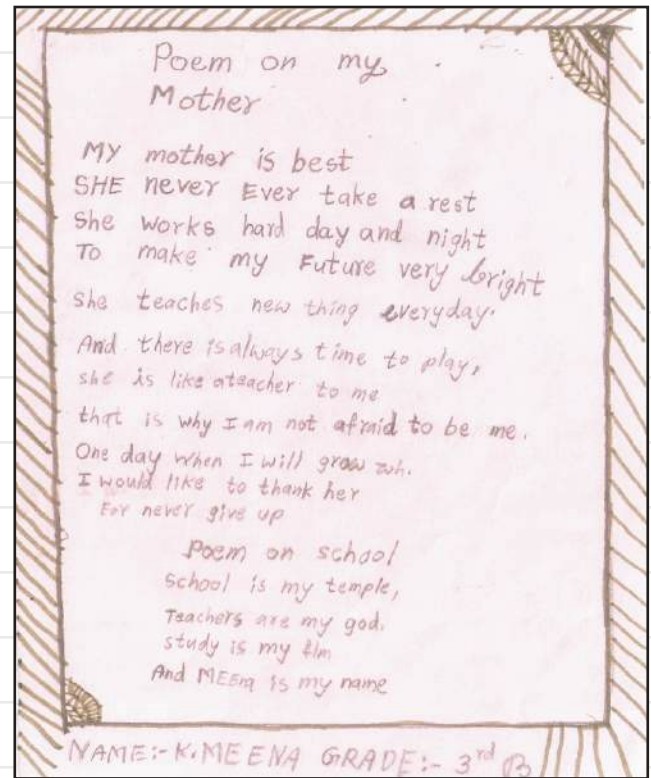 Poem on my
Mother
MY mother is best
SHE never Ever take a rest
She works hard day and night
To make my Future very bright
she teaches new thing everyday.
And there is always time to play,
she is like ateacher to me
that is why I am not afraid to be me.
One day when I will grow
I would like to thank her
For never give up
Poem on school
School is my temple,
Teachers are my god.
study is my
And MEEna is my name
NAME:- K.MEENA GRADE:- 3rd B